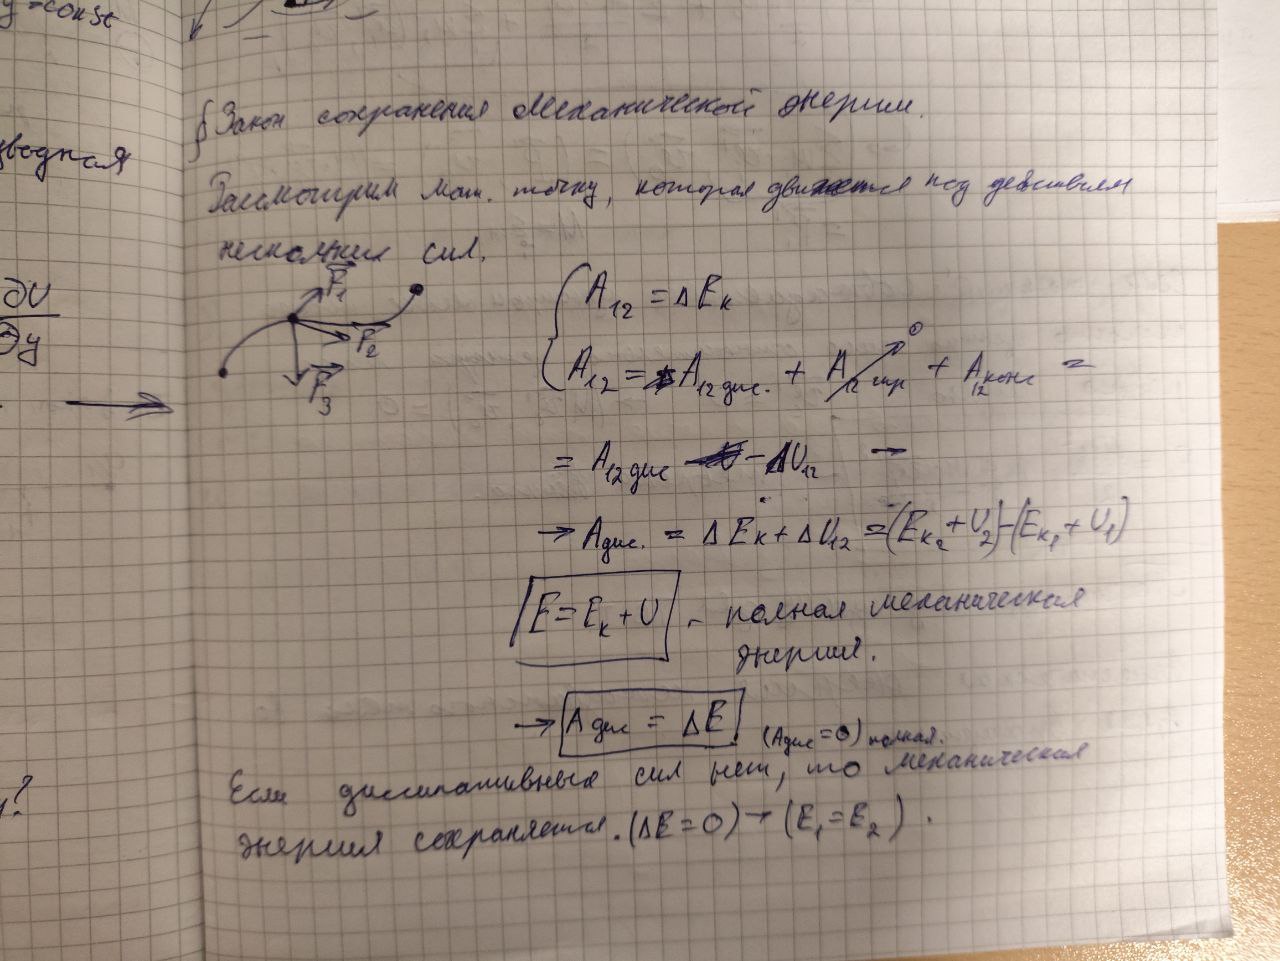 y = const
зводная
∂U
∂y
§ Закон сохранения механической энергии.
Рассмотрим мат. точку, которая движется под действием
нескольких сил.
F₁
F₂
F₃
A₁₂ = ΔEₖ
A₁₂ = A₁₂ дис. + A₁₂ гир → 0 + A₁₂ конс =
= A₁₂ дис − ΔU₁₂ →
→ A дис. = ΔEₖ + ΔU₁₂ = (Eₖ₂ + U₂) − (Eₖ₁ + U₁)
E = Eₖ + U - полная механическая
энергия.
→ A дис = ΔE
(A дис = 0) полная.
Если диссипативных сил нет, то механическая
энергия сохраняется. (ΔE = 0) → (E₁ = E₂).
?